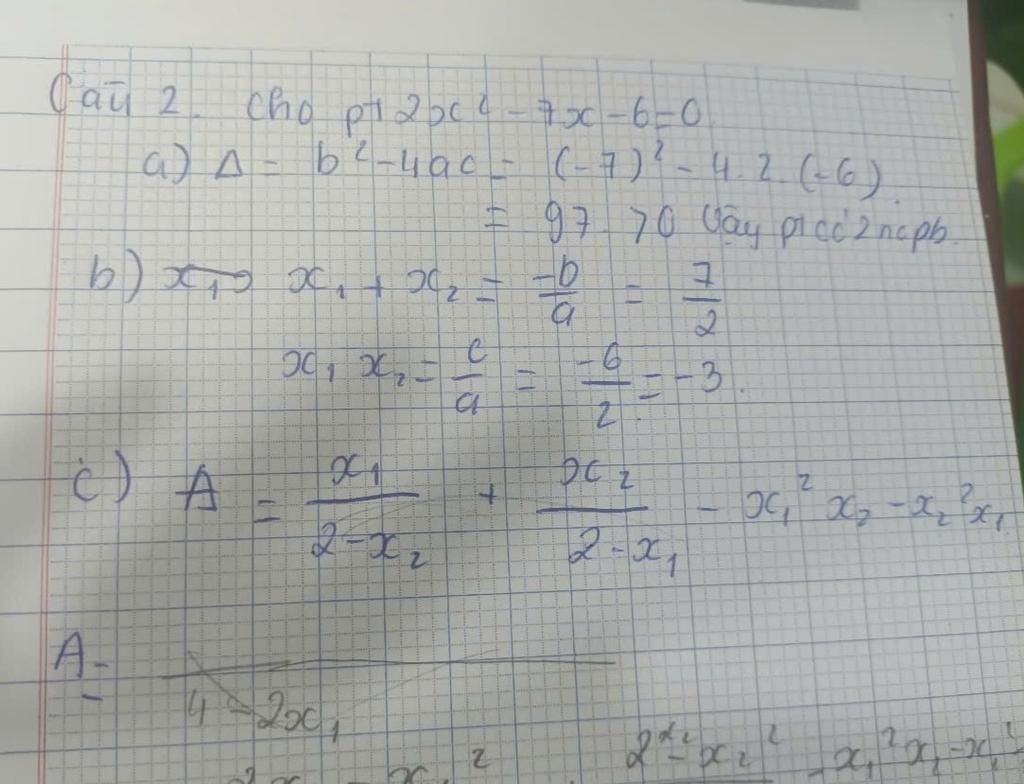 Câu 2. Cho pt 2x² - 7x - 6 = 0
a) Δ = b² - 4ac = (-7)² - 4.2.(-6).
= 97 > 0 Vậy pt có 2 ncpb.
b) x₁ x₁ + x₂ = -b/a = 7/2
x₁ x₂ = c/a = -6/2 = -3.
c) A = x₁/(2 - x₂) + x₂/(2 - x₁) - x₁² x₂ - x₂² x₁
A =
4 - 2x₁